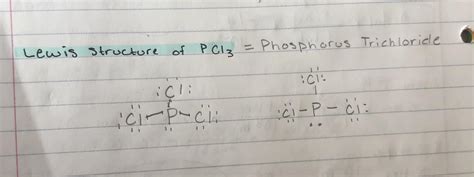 Lewis Structure of PCl3 = Phosphorus Trichloride
:Cl: :Cl:
:Cl—P—Cl: :Cl–P–Cl: